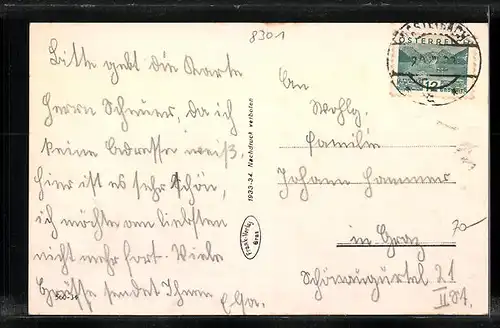 8301
Bitte gebt die Karte
Herrn Scheuer, da ich
keine Adresse weiß.
Hier ist es sehr schön,
ich möchte am liebsten
nicht mehr fort. Viele
Grüsse sendet Ihnen
1933-34. Nachdruck verboten
Frank-Verlag
Graz
ÖSTERREICH
12
An
Wohlg.
Familie
Johann Hammer
in Graz
Schönaugürtel 21
II St.
70